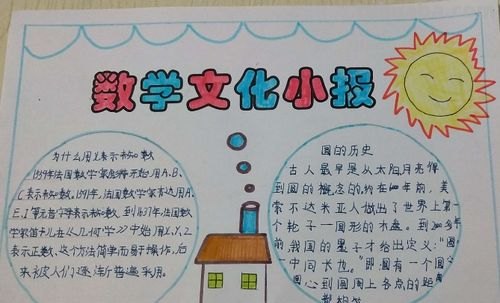 数学文化小报
为什么用X表示未知数
C表示未知数,1591年,法国数学家韦达用A、
E、I等元音字母表示未知数,到1637年,法国数
学家笛卡儿在《几何学》中始用X、Y、Z
表示正数,这个方法简单而易于操作,后
来被人们逐渐普遍采用。
圆的历史
古人最早是从太阳月亮得
到圆的概念的,约在6000年前,美
索不达米亚人做出了世界上第一
个轮子—圆形的木盘。到2000多年
前,我国的墨子才给出定义:“圆
一中同长也。”即圆有一个圆心
圆心到圆周上各点的距离